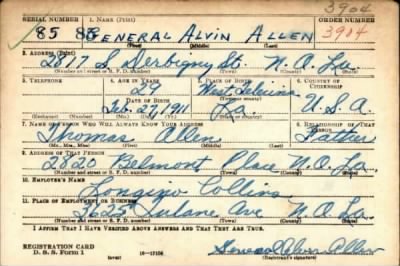 3904
SERIAL NUMBER 1. NAME (Print) ORDER NUMBER
85 GENERAL ALVIN ALLEN 3914
(First) (Middle) (Last)
2. ADDRESS (Print)
2817 S Derbigny St. N.O. La
(Number and street or R. F. D. number) (Town) (County) (State)
3. TELEPHONE 4. AGE IN YEARS 5. PLACE OF BIRTH 6. COUNTRY OF CITIZENSHIP
29 West
DATE OF BIRTH (Town or county)
Feb. 27, 1911 La. U.S.A
(Exchange) (Number) (Mo.) (Day) (Yr.) (State or country)
7. NAME OF PERSON WHO WILL ALWAYS KNOW YOUR ADDRESS 8. RELATIONSHIP OF THAT PERSON
Thomas Allen Father
(Mr., Mrs., Miss) (First) (Middle) (Last)
9. ADDRESS OF THAT PERSON
2820 Belmont Place N.O. La.
(Number and street or R. F. D. number) (Town) (County) (State)
10. EMPLOYER'S NAME
Longino Collins
11. PLACE OF EMPLOYMENT OR BUSINESS
3625 Tulane Ave N.O. La
(Number and street or R. F. D. number) (Town) (County) (State)
I AFFIRM THAT I HAVE VERIFIED ABOVE ANSWERS AND THAT THEY ARE TRUE.
REGISTRATION CARD
D. S. S. Form 1 (over) General Alvin Allen
(Registrant's signature)